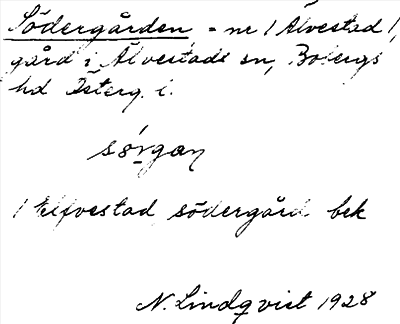 Södergården = nr 1 Älvestad 1,
gård i Älvestads sn, Bobergs
hd Österg. l.
sørgan
1 Elfvestad, södergård bek
N. Lindqvist 1928